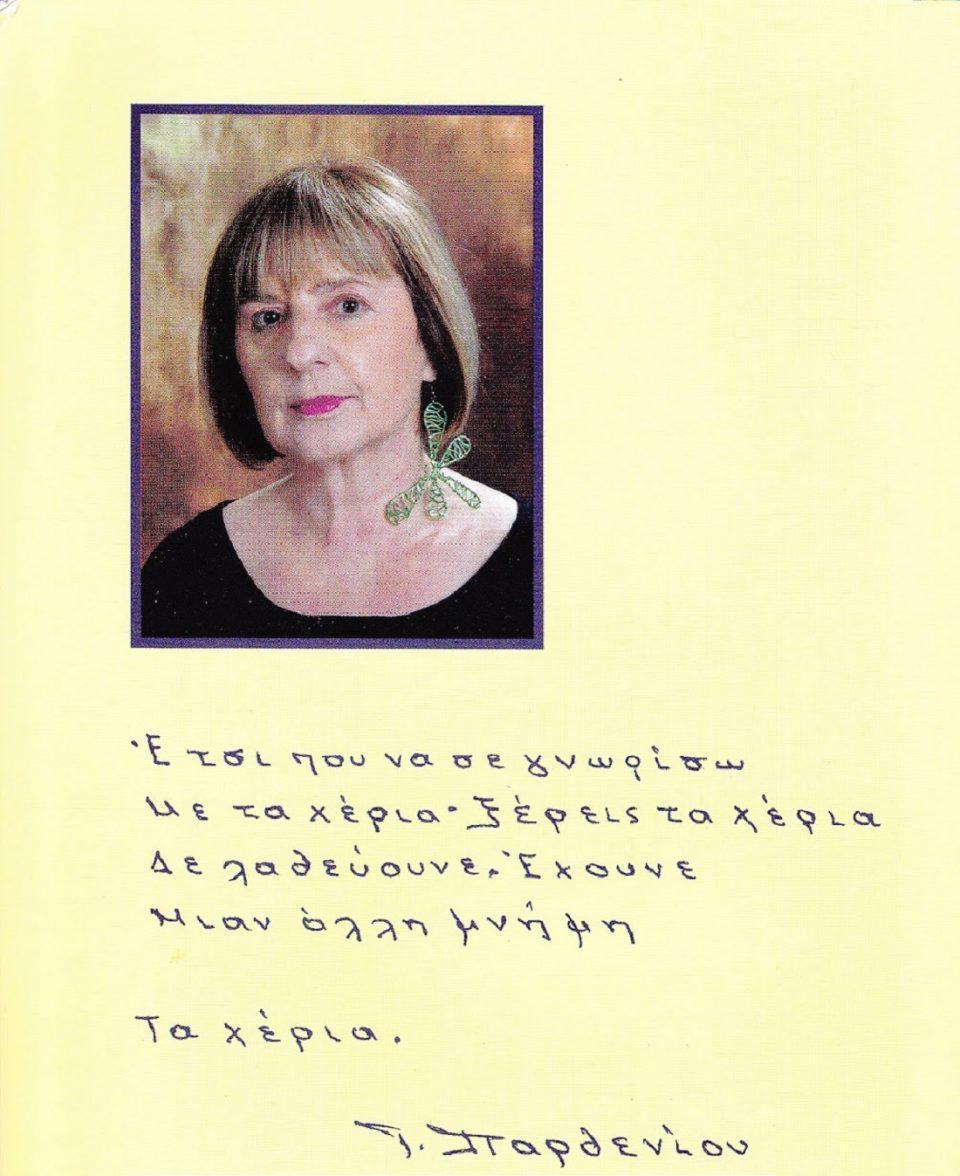 Έτσι που να σε γνωρίσω
Με τα χέρια· Ξέρεις τα χέρια
Δε λαθεύουνε. Έχουνε
Μιαν άλλη μνήμη
Τα χέρια.
Τ. Παρθενίου